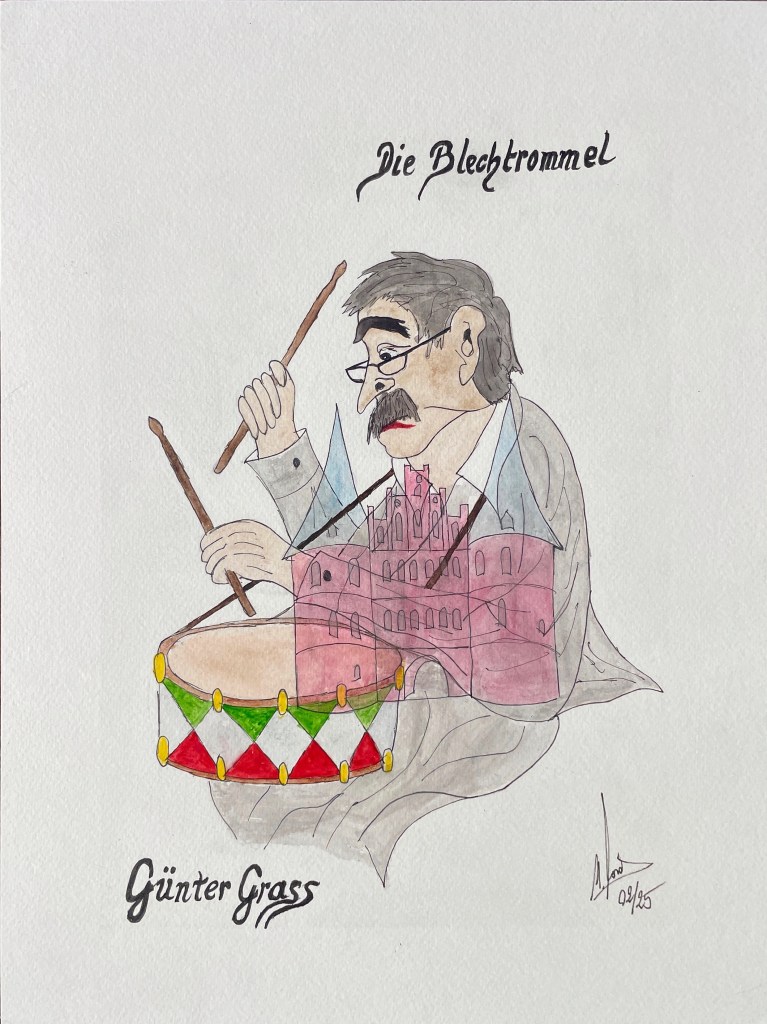 Die Blechtrommel
Günter Grass
02/25